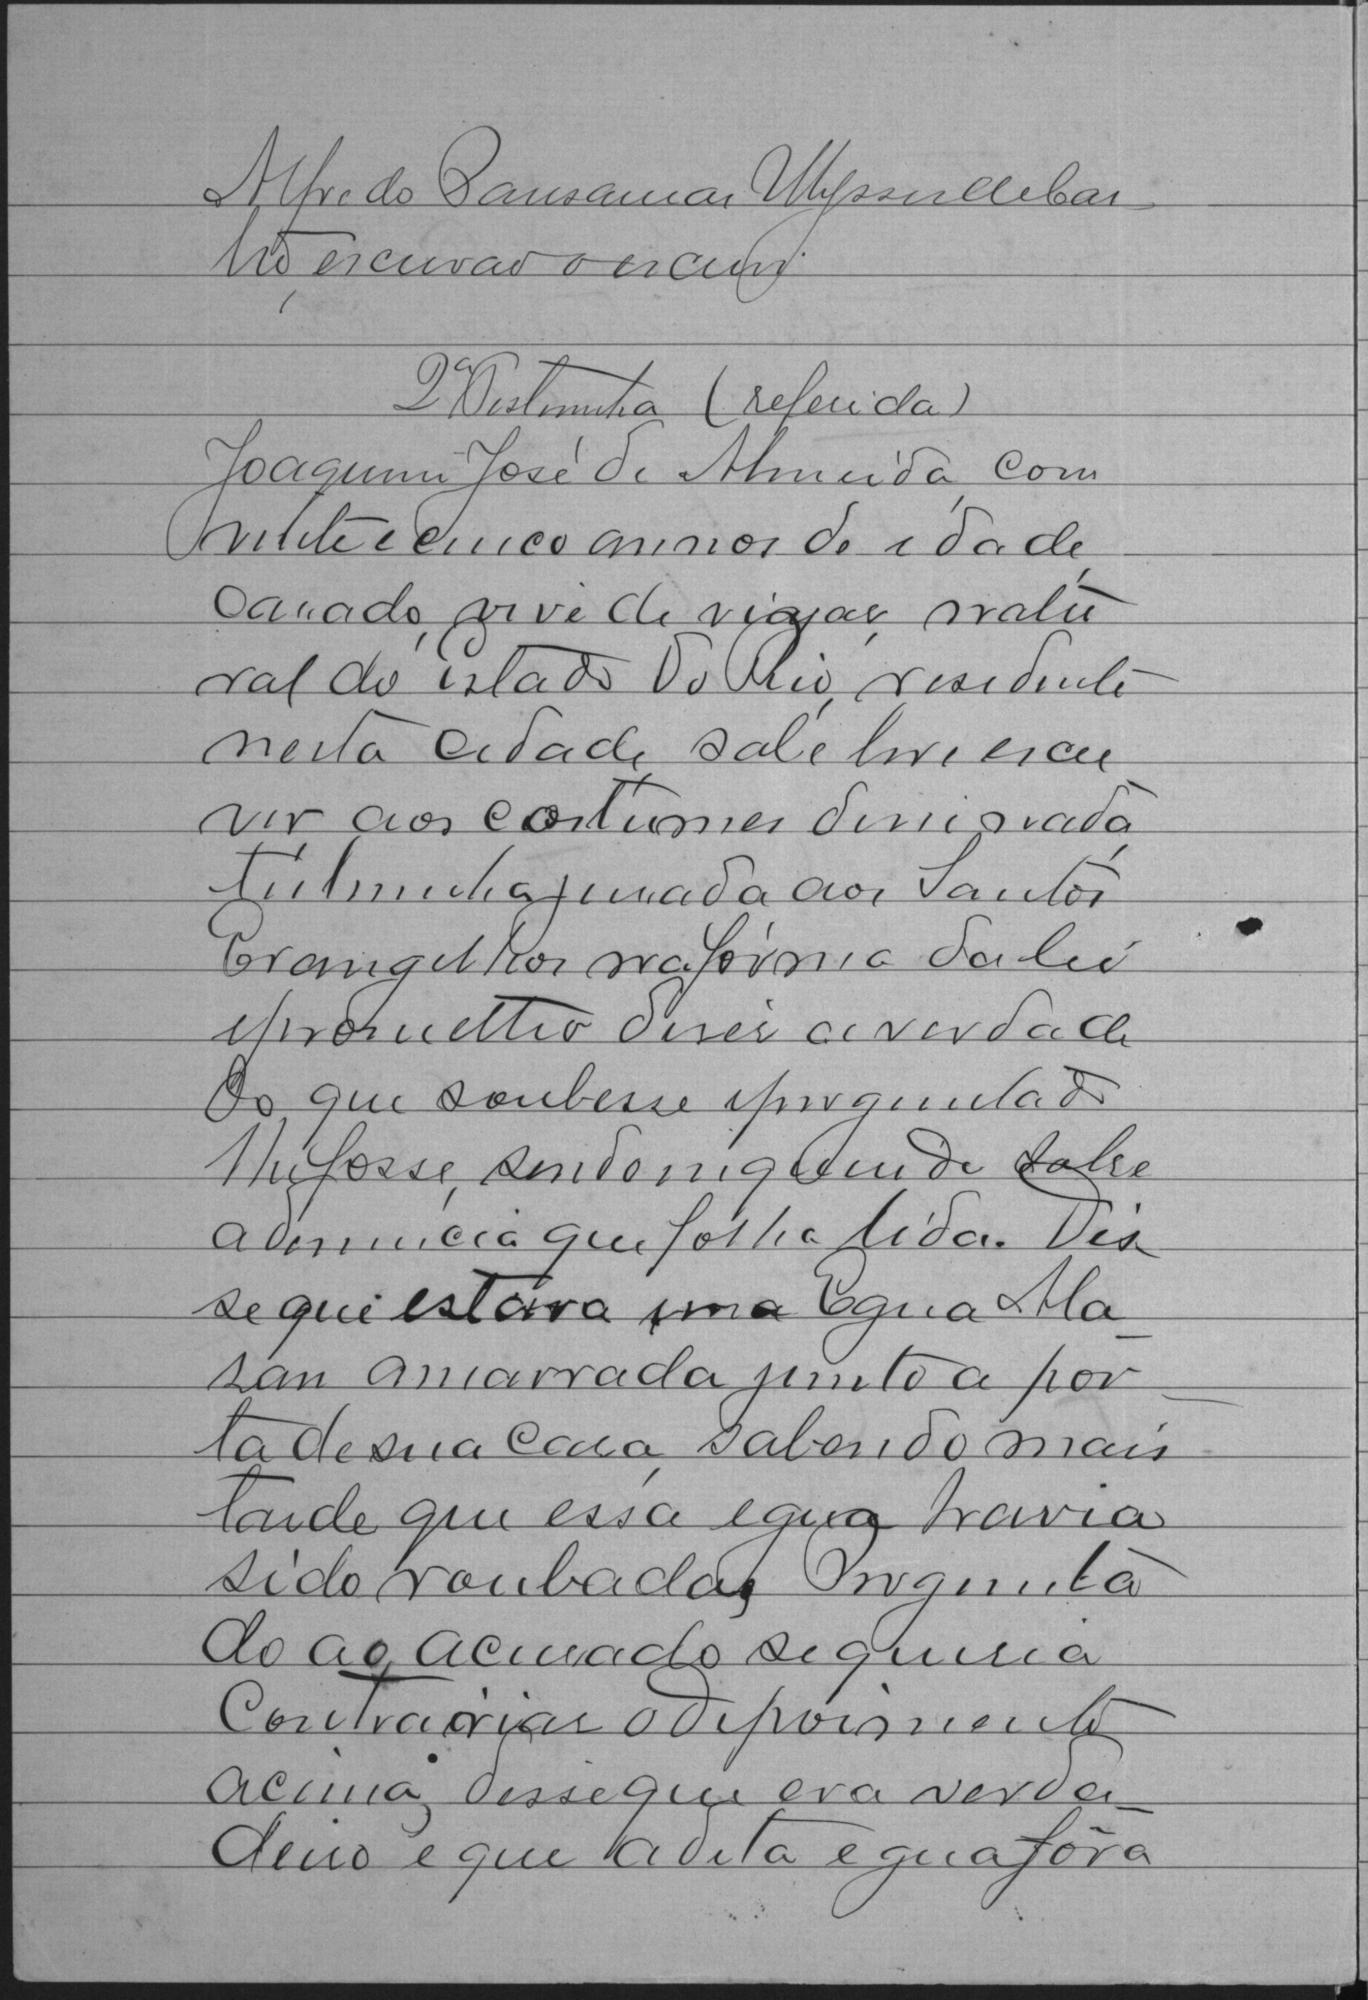 Alfredo Ulysses de Car
lho, escrivão o escrevi.
2ª Testimunha (referida)
Joaquim José de Almeida, com
vinte e cinco annos de idade,
casado, vive de viajar, natu
ral do Estado do Rio, residente
nesta cidade, sabe ler e escre
ver, aos costumes disse nada,
testimunha jurada aos Santos
Evangelhos na fórma da lei
e prometteu diser a verdade
do que soubesse e perguntado
lhe fosse, sendo inquirida sobre
a denuncia que foi lhe lida. Dis
se que estava uma Egua Ala
san amarrada junto a por
ta de sua casa, sabendo mais
tarde que essa egua havia
sido roubada, Pergunta
do ao accusado se queria
Contrariar o depoimento
acima, disse que era verda
deiro e que a dita egua fôra